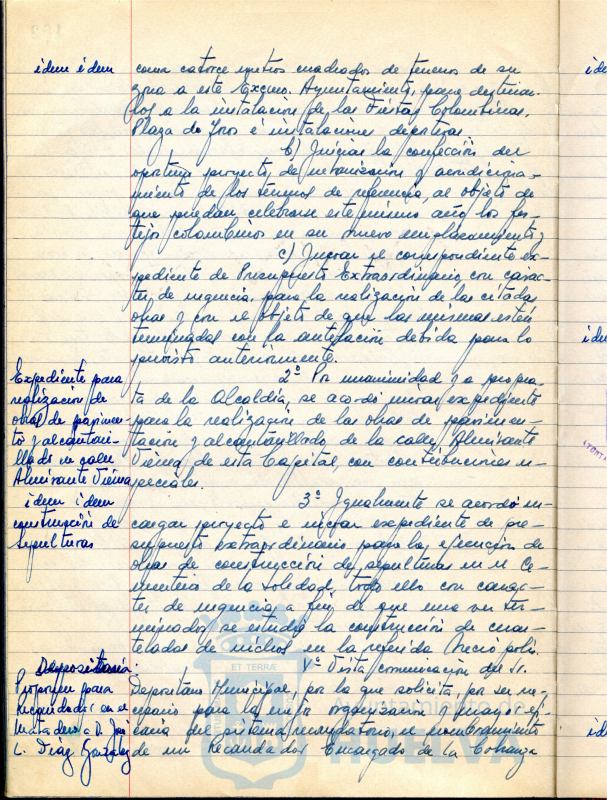 idem idem
como catorce metros cuadrados de terrenos de su
zona a este Excmo. Ayuntamiento, para destinar-
los a la instalación de las Fiestas Colombinas,
Plaza de Toros e instalaciones deportivas.
b) Iniciar la confección del
oportuno proyecto, de urbanización y acondiciona-
miento de los terrenos de referencia, al objeto de
que puedan celebrarse este mismo año los fes-
tejos colombinos en su nuevo emplazamiento y
c) Incoar el correspondiente ex-
pediente de Presupuesto Extraordinario, con carac-
ter de urgencia, para la realización de las citadas
obras y con el objeto de que las mismas estén
terminadas con la antelación debida para lo
previsto anteriormente.
Expediente para
realización de
obras de pavimen-
to y alcantari-
llado en calle
Almirante Viena
2º Por unanimidad y a propues-
ta de la Alcaldía, se acordó incoar expediente
para la realización de las obras de pavimen-
tación y alcantarillado de la calle, Almirante
Viena, de esta Capital, con contribuciones es-
peciales.
idem idem
construcción de
sepulturas
3º Igualmente se acordó en-
cargar proyecto e incoar expediente de pre-
supuesto extraordinario para la ejecución de
obras de construcción de sepulturas en el Ce-
menterio de la Soledad, todo ello con carac-
ter de urgencia, a fin de que una vez ter-
minados se estudie la construcción de cuar-
teladas de nichos en la referida Necrópolis.
Depositaria.
Propuesta para
Recaudador en el
Matadero a D. José
L. Díaz González
V.º Vista comunicación del Sr.
Depositario Municipal, por la que solicita, por ser ne-
cesario para la mejor organización y mayor efi-
cacia del sistema recaudatorio, el nombramiento
de un Recaudador Encargado de la Cobranza
ET TERRÆ
Ayuntamiento de
HUELVA
ide
idem
id